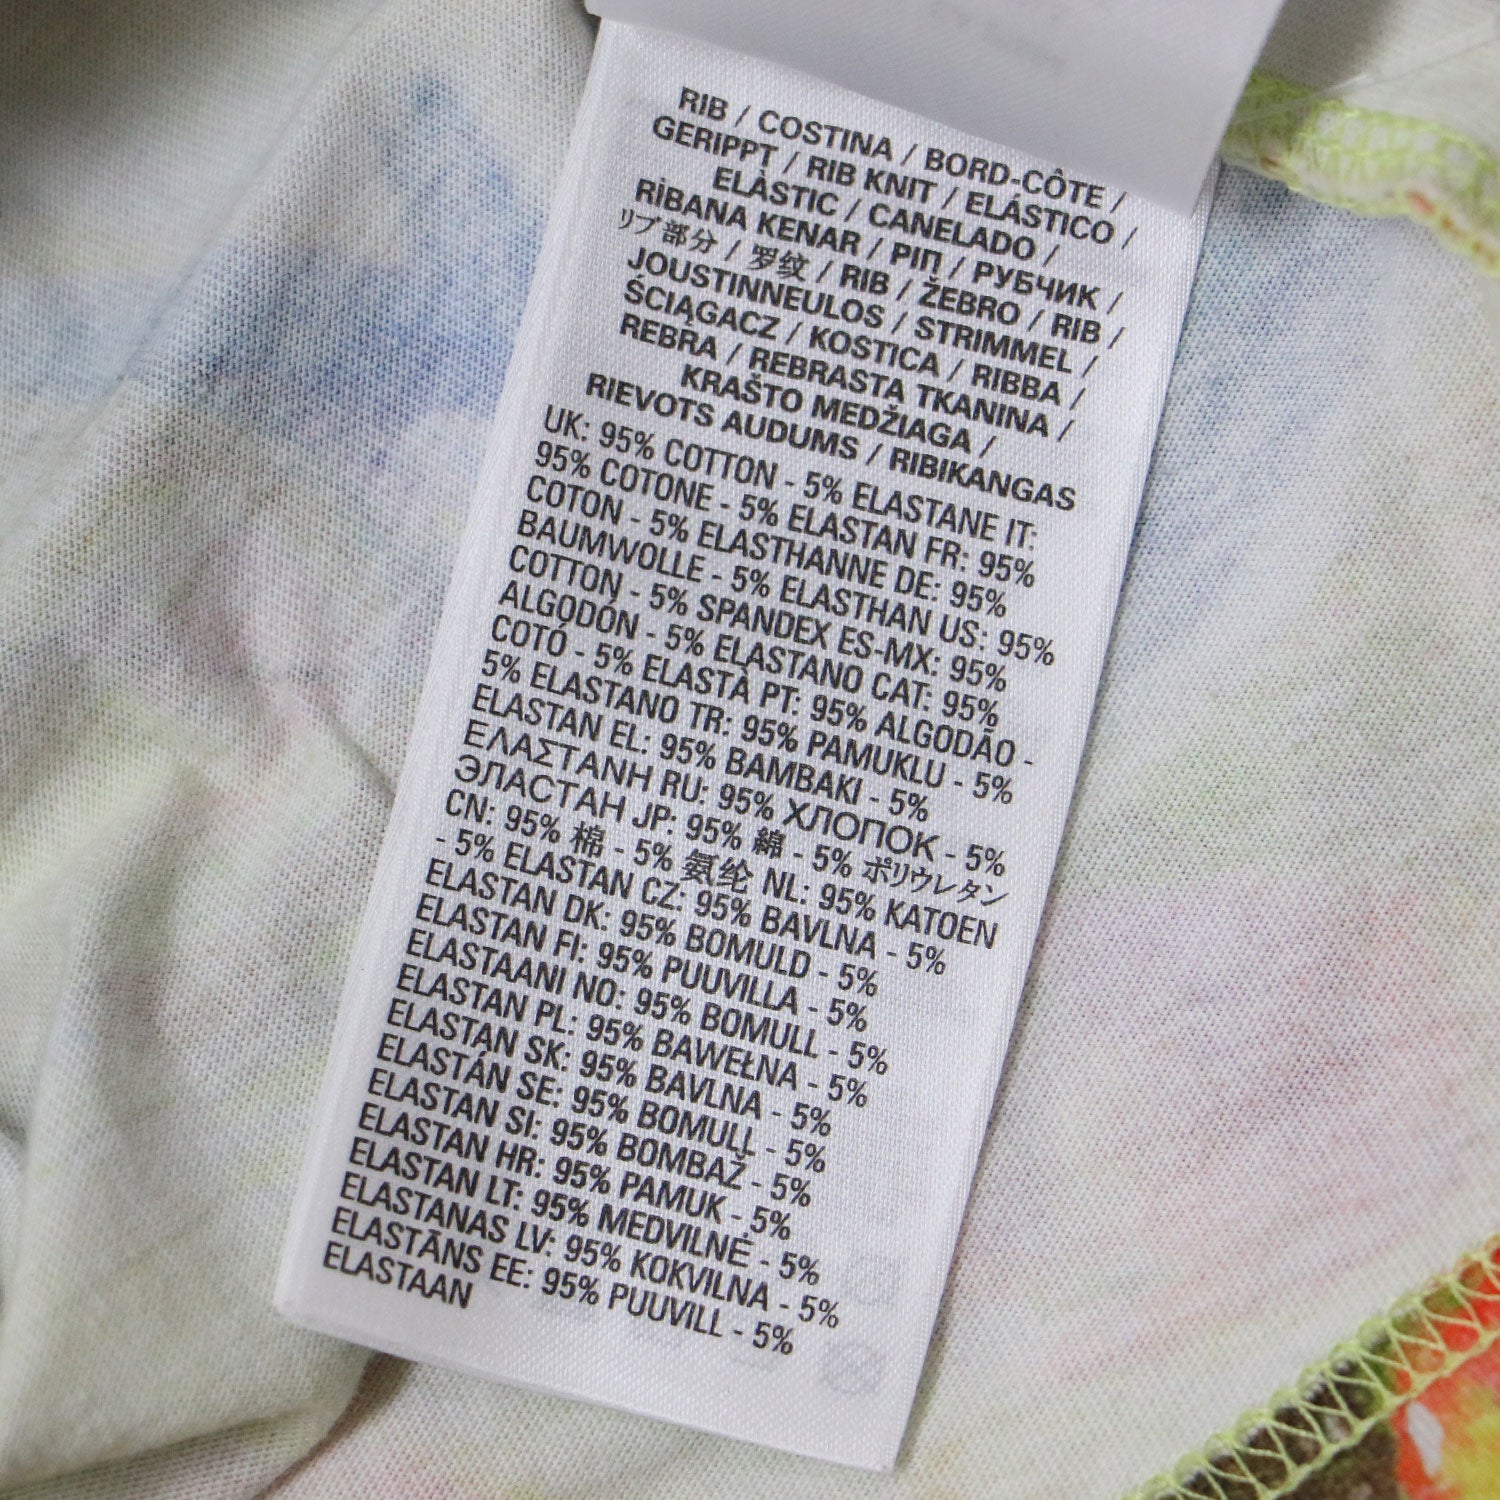 RIB / COSTINA / BORD-CÔTE /
GERIPPT / RIB KNIT / ELÁSTICO /
ELÀSTIC / CANELADO /
RİBANA KENAR / ΡΙΠ / РУБЧИК /
リブ部分 / 罗纹 / RIB / ŽEBRO / RIB /
JOUSTINNEULOS / STRIMMEL /
ŚCIĄGACZ / KOSTICA / RIBBA /
REBŘA / REBRASTA TKANINA /
KRAŠTO MEDŽIAGA /
RIEVOTS AUDUMS / RIBIKANGAS
UK: 95% COTTON - 5% ELASTANE IT:
95% COTONE - 5% ELASTAN FR: 95%
COTON - 5% ELASTHANNE DE: 95%
BAUMWOLLE - 5% ELASTHAN US: 95%
COTTON - 5% SPANDEX ES-MX: 95%
ALGODÓN - 5% ELASTANO CAT: 95%
COTÓ - 5% ELASTÀ PT: 95% ALGODÃO -
5% ELASTANO TR: 95% PAMUKLU - 5%
ELASTAN EL: 95% ΒΑΜΒΑΚΙ - 5%
ΕΛΑΣΤΑΝΗ RU: 95% ХЛОПОК - 5%
ЭЛАСТАН JP: 95% 綿 - 5% ポリウレタン
CN: 95% 棉 - 5% 氨纶 NL: 95% KATOEN
- 5% ELASTAN CZ: 95% BAVLNA - 5%
ELASTAN DK: 95% BOMULD - 5%
ELASTAN FI: 95% PUUVILLA - 5%
ELASTAANI NO: 95% BOMULL - 5%
ELASTAN PL: 95% BAWEŁNA - 5%
ELASTAN SK: 95% BAVLNA - 5%
ELASTÁN SE: 95% BOMULL - 5%
ELASTAN SI: 95% BOMBAŽ - 5%
ELASTAN HR: 95% PAMUK - 5%
ELASTAN LT: 95% MEDVILNĖ - 5%
ELASTANAS LV: 95% KOKVILNA - 5%
ELASTĀNS EE: 95% PUUVILL - 5%
ELASTAAN